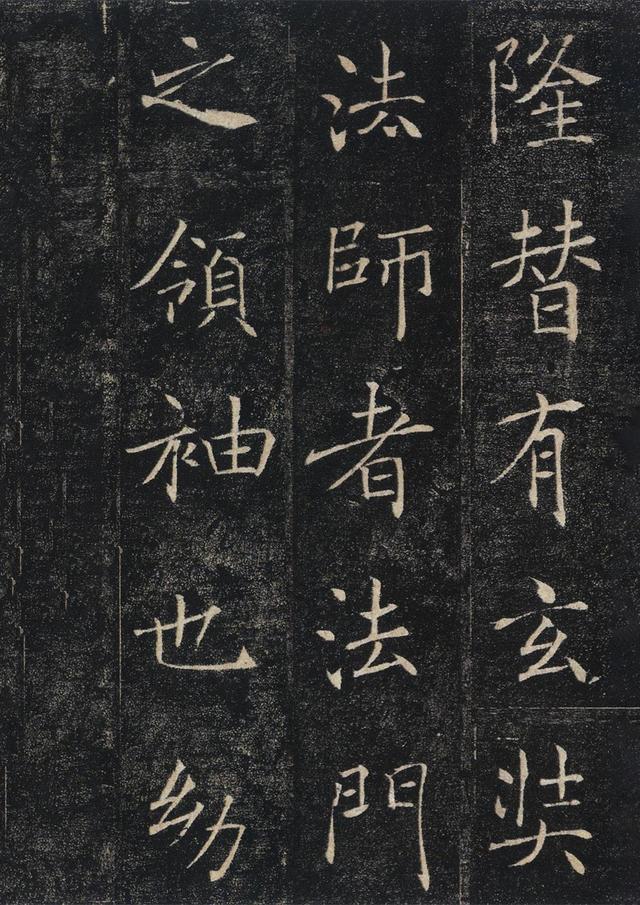 隆替有玄奘
法師者法門
之領袖也幼